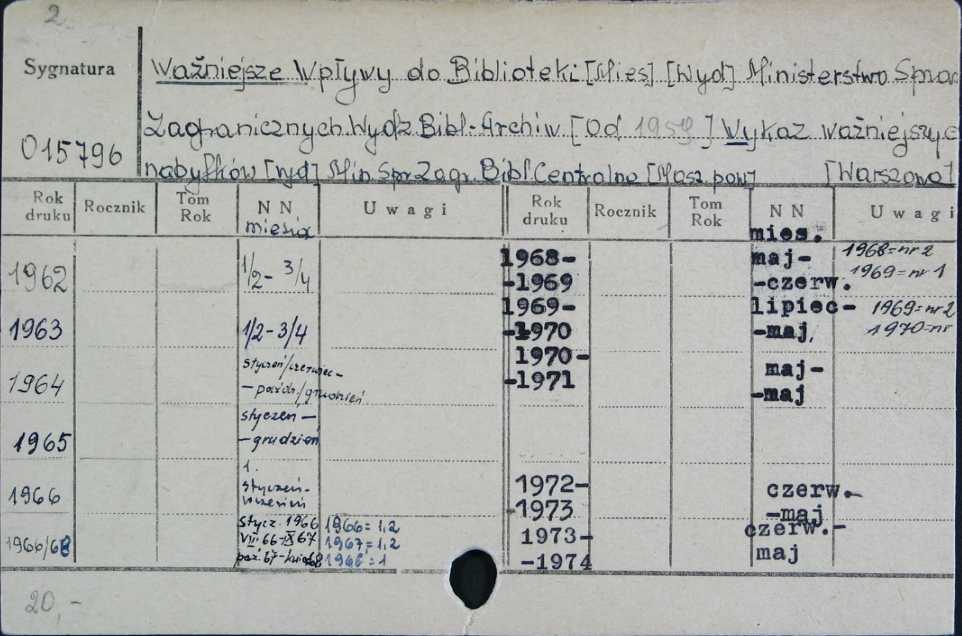 2
Sygnatura
O15796
Ważniejsze Wpływy do Biblioteki [Mies] [Wyd] Ministerstwo Spraw
Zagranicznych. Wydz Bibl.-Archiw. [Od 1959] Wykaz ważniejszyc
nabytków [wyd] Min. Spr Zagr. Bibl Centralna [Masz. pow] [Warszawa]
Rok druku Rocznik Tom Rok N N Uwagi Rok druku Rocznik Tom Rok N N Uwagi
miesiąc mies.
1962 1/2- 3/4
1963 1/2-3/4
1964 styczeń/czerwiec-
-paźdź/grudzień
1965 styczeń-
-grudzień
1966 1.
styczeń-
wrzesień
1966/68 stycz. 1966 1966=1,2
VII 66-IX 67 1967=1,2
paź. 67- 68 1968=1
1968- maj- 1968=nr 2
-1969 -czerw. 1969=nr 1
1969- lipiec- 1969=nr 2
-1970 -maj, 1970=nr
1970- maj-
-1971 -maj
1972- czerw.-
-1973 -maj
1973- czerw.-
-1974 maj
20,-